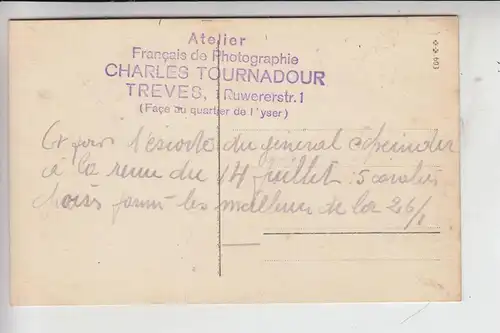 Atelier
Français de Photographie
CHARLES TOURNADOUR
TREVES, Ruwererstr. 1
(Façe au quartier de l'yser)
l'escorte du général
à la revue du 14 juillet : 5 cavaliers
choisis parmi les meilleurs de la 26/1